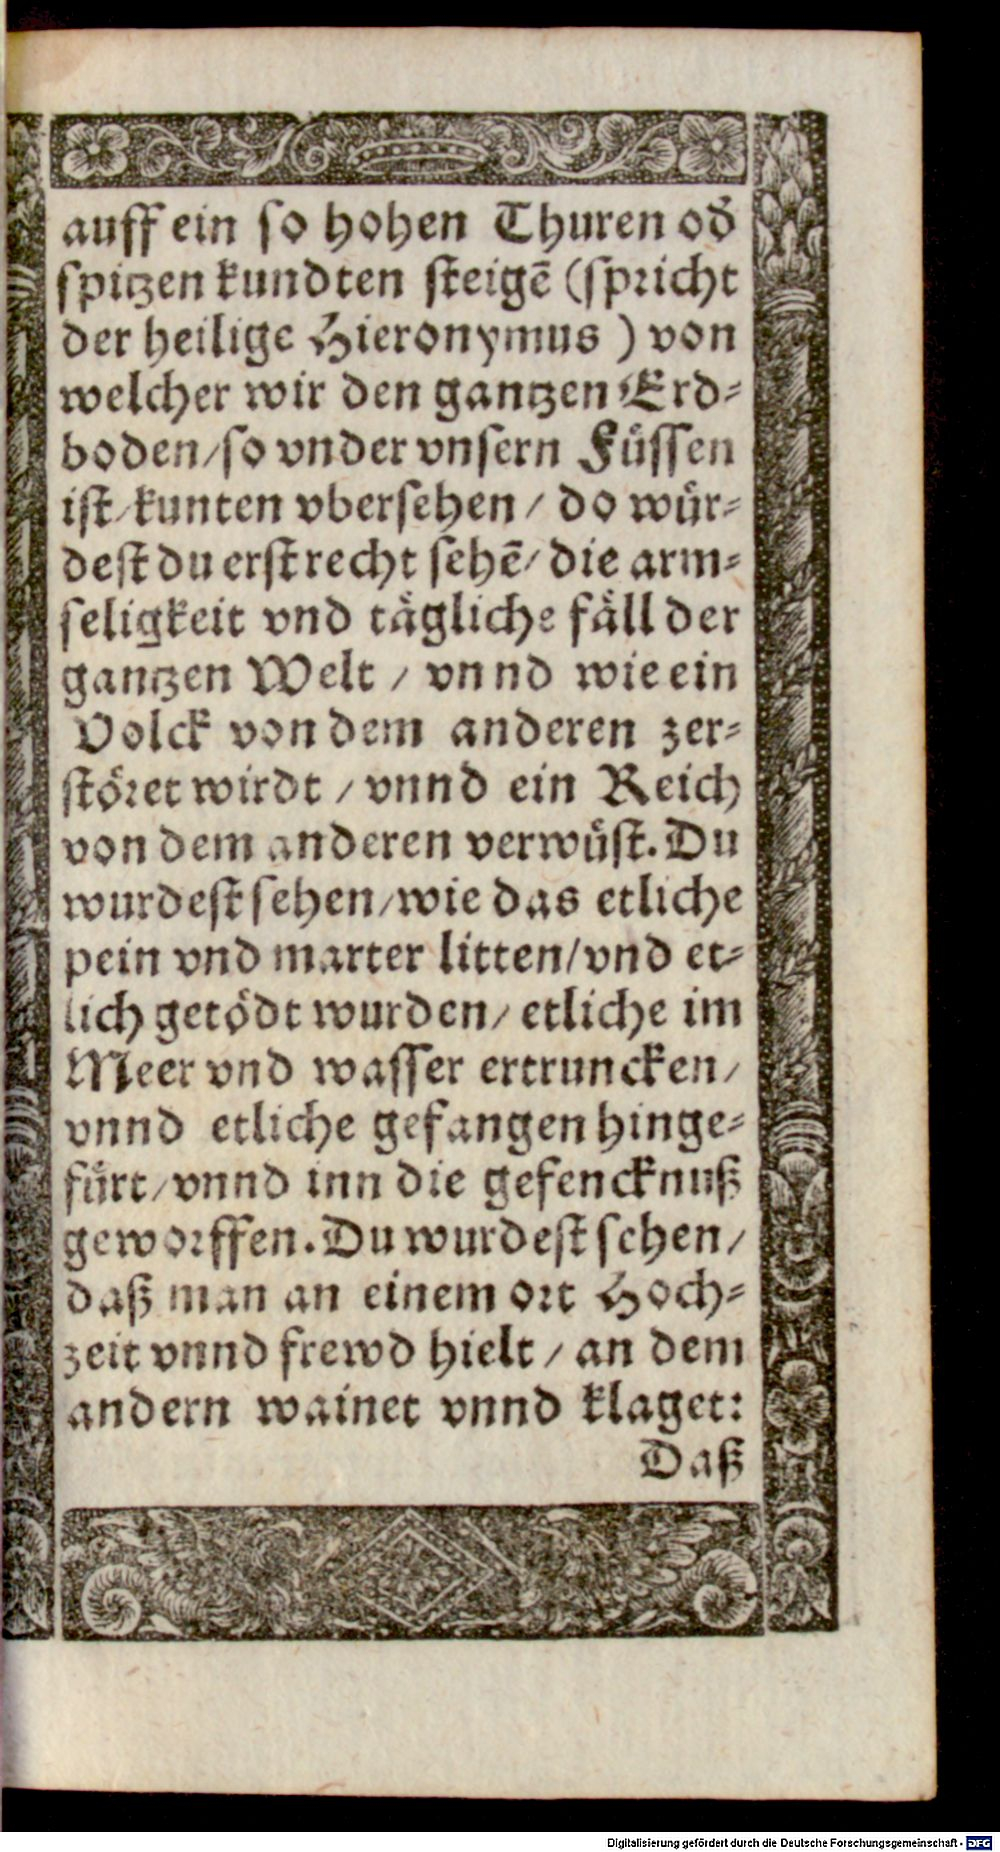 auff ein so hohen Thuren od̕
spitzen kundten steigē (spricht
der heilige Hieronymus) von
welcher wir den gantzen Erd-
boden/so vnder vnsern Füssen
ist/kunten vbersehen/ do wür-
dest du erst recht sehē/ die arm-
seligkeit vnd tägliche fäll der
gantzen Welt / vnnd wie ein
Volck von dem anderen zer-
störet wirdt / vnnd ein Reich
von dem anderen verwüst. Du
wurdest sehen/wie das etliche
pein vnd marter litten/vnd et-
lich getödt wurden/ etliche im
Meer vnd wasser ertruncken/
vnnd etliche gefangen hinge-
fürt/vnnd inn die gefencknuß
geworffen. Du wurdest sehen/
daß man an einem ort Hoch-
zeit vnnd frewd hielt / an dem
andern wainet vnnd klaget:
Daß
Digitalisierung gefördert durch die Deutsche Forschungsgemeinschaft - DFG